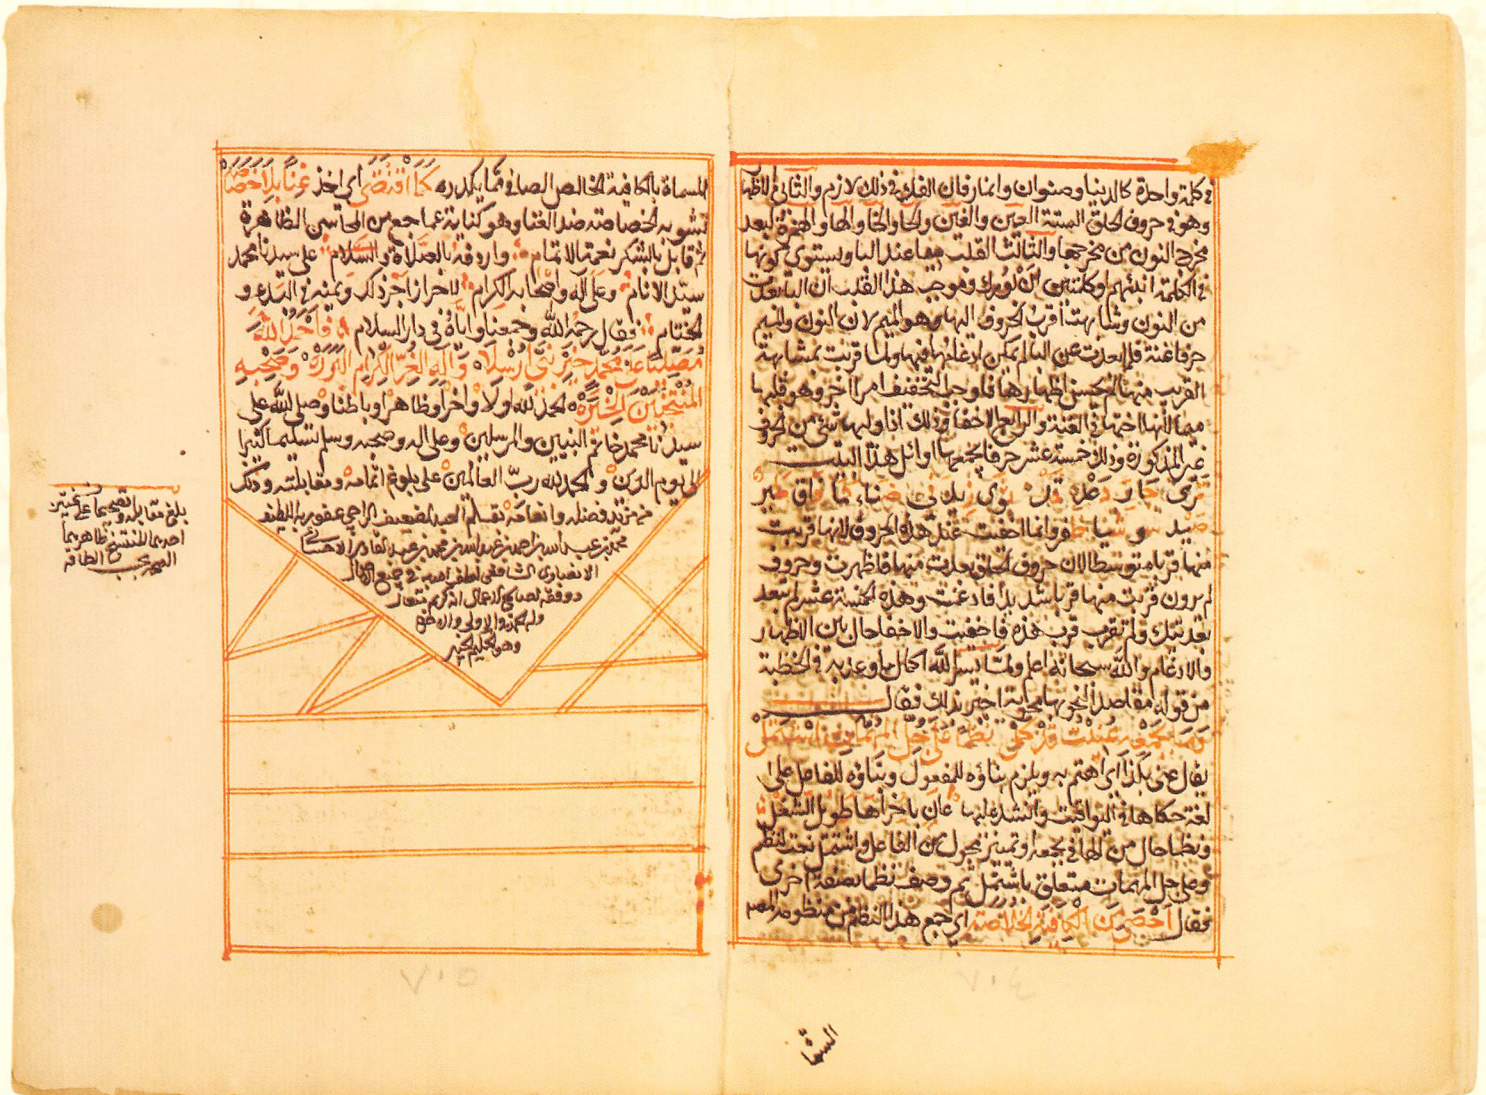 في كلمة واحدة كالدنيا وصنوان وانمار فان الفك في ذلك لازم والثاني الاظهار
وهو في حروف الحلق الستة العين والغين والحا والخا والها والهمزة لبعد
مخرج النون من مخرجها والثالث القلب ميما عند البا ويستوي كونها
في الكلمة انبئهم او كلمتين ان بورك وموجب هذا القلب ان البا بعدت
من النون وشابهت اقرب الحروف اليها وهو الميم لان النون والميم
حرفا غنة فلما بعدت عن البا لم يمكن ادغامها فيها ولما قربت بمشابهة
القريب منها لم يحسن اظهارها فاوجب التخفيف امرا اخر وهو قلبها
ميما لانها اختها في الغنة والرابع الاخفا وذلك اذا وليها شي من الحروف
غير المذكورة وذلك خمسة عشر حرفا يجمعها اوائل هذا البيت
ترى جار دعد قد ثوى زيد في ضنا كما ذاق طير
صيد سو شبا ظفر وانما اخفيت عند هذه الحروف لانها قربت
منها قربا متوسطا لان حروف الحلق بعدت منها فاظهرت وحروف
لم يرون قربت منها قربا شديدا فادغمت وهذه الخمسة عشر لم تبعد
بعد تلك ولم تقرب قرب هذه فاخفيت والاخفا حال بين الاظهار
والادغام والله سبحانه اعلم ولما يسر الله اكمال ما وعد به في الخطبة
من قوله مقاصد النحو بها محوية اخبر بذلك فقال
وما بجمعه عنيت قد كمل نظما على جل المهمات اشتمل
يقال عني بكذا اي اهتم به ويلزم بناؤه للمفعول وبناؤه للفاعل على
لغة حكاها في اليواقيت وانشد عليها عان باخراها طويل الشغل
ونظما حال من الها في بجمعه او تمييز محول عن الفاعل واشتمل نعت لنظم
وعلى جل المهمات متعلق باشتمل ثم وصف نظما بصفة اخرى
فقال احصى من الكافية الخلاصة اي جمع هذا النظم من منظومة المصنف
المسماة بالكافية الخالص الصافي مما يكدره كما اقتضى اي اخذ غنا بلا خصاصة
تشوبه الخصاصة ضد الغنا وهو كناية عما جمع من المحاسن الظاهرة
ثم قابل بالشكر نعمة الاتمام واردفه بالصلاة والسلام على سيدنا محمد
سيد الانام وعلى آله واصحابه الكرام لاحراز اجر ذلك ويمنه في البدء و
الختام فقال رحمه الله وجمعنا واياه في دار السلام فاحمد الله
مصليا على محمد خير نبي ارسلا وآله الغر الكرام البررة وصحبه
المنتخبين الخيرة الحمد لله اولا واخرا وظاهرا وباطنا وصلى الله على
سيدنا محمد خاتم النبيين والمرسلين وعلى اله وصحبه وسلم تسليما كثيرا
الى يوم الدين والحمد لله رب العالمين على بلوغ اتمامه ومقابلته وذلك
من مزيد فضله وانعامه بقلم العبد الضعيف الراجي عفو ربه اللطيف
الانصاري الشافعي لطف الله به في جميع الاحوال
ووفقه لصالح الاعمال انه كريم متعال
وله الحمد في الاولى والاخرة
وهو الحكيم الخبير
بلغ مقابلة وتصحيحا على نسختين
احديهما المنتسخ ظاهريهما
الصحة بحسب الطاقة
٧٠٥